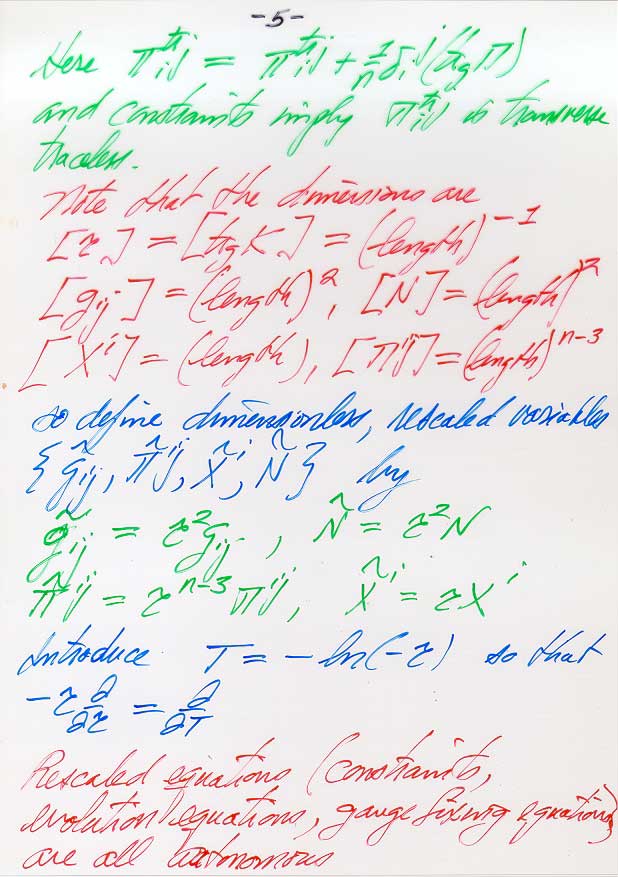 -5-
Here π^{tr}_i^j = π^{tr}_i^j + 1/n δ_i^j (tr_g π)
and constraints imply π^{tr}_i^j is transverse
traceless.
Note that the dimensions are
[τ] = [tr_g K] = (length)^{-1}
[g_{ij}] = (length)^2, [N] = (length)^2
[X^i] = (length), [π^{ij}] = (length)^{n-3}
so define dimensionless, rescaled variables
{g̃_{ij}, π̃^{ij}, X̃^i, Ñ} by
g̃_{ij} = τ^2 g_{ij}, Ñ = τ^2 N
π̃^{ij} = τ^{n-3} π^{ij}, X̃^i = τX^i
Introduce T = -ln(-τ) so that
-τ ∂/∂τ = ∂/∂T
Rescaled equations (constraints,
evolution equations, gauge fixing equations)
are all autonomous